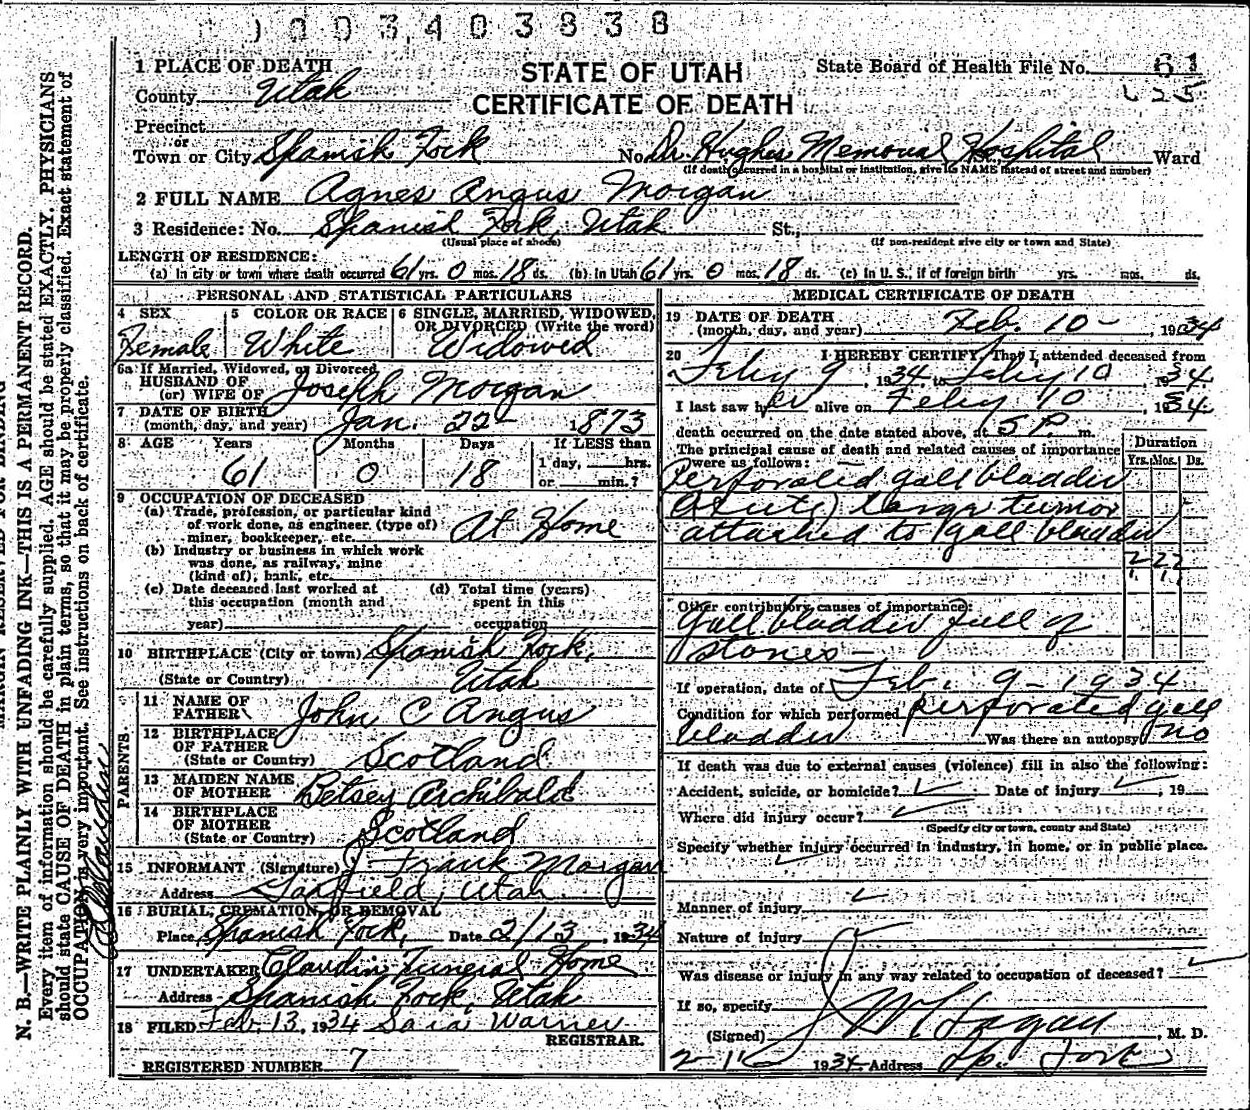 1003403838
1 PLACE OF DEATH
STATE OF UTAH
CERTIFICATE OF DEATH
State Board of Health File No. 61
625
County Utah
Precinct
or
Town or City Spanish Fork No. Dr. Hughes Memorial Hospital Ward
(If death occurred in a hospital or institution, give its NAME instead of street and number)
2 FULL NAME Agnes Angus Morgan
3 Residence: No. Spanish Fork, Utah St.,
(Usual place of abode) (If non-resident give city or town and State)
LENGTH OF RESIDENCE:
(a) In city or town where death occurred 61 yrs. 0 mos. 18 ds. (b) In Utah 61 yrs. 0 mos. 18 ds. (c) In U. S., if of foreign birth yrs. mos. ds.
PERSONAL AND STATISTICAL PARTICULARS
4 SEX 5 COLOR OR RACE 6 SINGLE, MARRIED, WIDOWED,
OR DIVORCED (Write the word)
Female White Widowed
6a If Married, Widowed, or Divorced
HUSBAND OF
(or) WIFE OF Joseph Morgan
7 DATE OF BIRTH
(month, day, and year) Jan. 22 1873
8 AGE Years Months Days If LESS than
1 day, hrs.
61 0 18 or min.?
9 OCCUPATION OF DECEASED
(a) Trade, profession, or particular kind
of work done, as engineer, (type of)
miner, bookkeeper, etc. At Home
(b) Industry or business in which work
was done, as railway, mine
(kind of), bank, etc.
(c) Date deceased last worked at (d) Total time (years)
this occupation (month and spent in this
year) occupation
10 BIRTHPLACE (City or town) Spanish Fork,
(State or Country) Utah
PARENTS.
11 NAME OF
FATHER John C Angus
12 BIRTHPLACE
OF FATHER
(State or Country) Scotland
13 MAIDEN NAME
OF MOTHER Betsey Archibald
14 BIRTHPLACE
OF MOTHER
(State or Country) Scotland
15 INFORMANT (Signature) J. Frank Morgan
Address Garfield, Utah
16 BURIAL, CREMATION, OR REMOVAL
Place Spanish Fork, Date 2/13, 1934
17 UNDERTAKER Claudin Funeral Home
Address Spanish Fork, Utah
18 FILED Feb. 13, 1934 Sara Warner
REGISTRAR.
REGISTERED NUMBER 7
MEDICAL CERTIFICATE OF DEATH
19 DATE OF DEATH
(month, day, and year) Feb. 10 - 1934
20 I HEREBY CERTIFY, That I attended deceased from
Feby 9, 1934, to Feby 10 1934
I last saw her alive on Feby 10, 1934
death occurred on the date stated above, at 5 P. m.
The principal cause of death and related causes of importance
were as follows:
Duration
Yrs. Mos. Ds.
Perforated gall bladder
(Acute) Large tumor
attached to gall bladder
Other contributory causes of importance:
Gall bladder full of
stones -
If operation, date of Feb. 9 - 1934
Condition for which performed perforated gall
bladder Was there an autopsy no
If death was due to external causes (violence) fill in also the following:
Accident, suicide, or homicide? Date of injury , 19
Where did injury occur?
(Specify city or town, county and State)
Specify whether injury occurred in industry, in home, or in public place.
Manner of injury
Nature of injury
Was disease or injury in any way related to occupation of deceased?
If so, specify
(Signed) , M. D.
1934 Address Sp. Fork
N. B.—WRITE PLAINLY WITH UNFADING INK—THIS IS A PERMANENT RECORD.
Every item of information should be carefully supplied. AGE should be stated EXACTLY. PHYSICIANS
should state CAUSE OF DEATH in plain terms, so that it may be properly classified. Exact statement of
OCCUPATION is very important. See instructions on back of certificate.